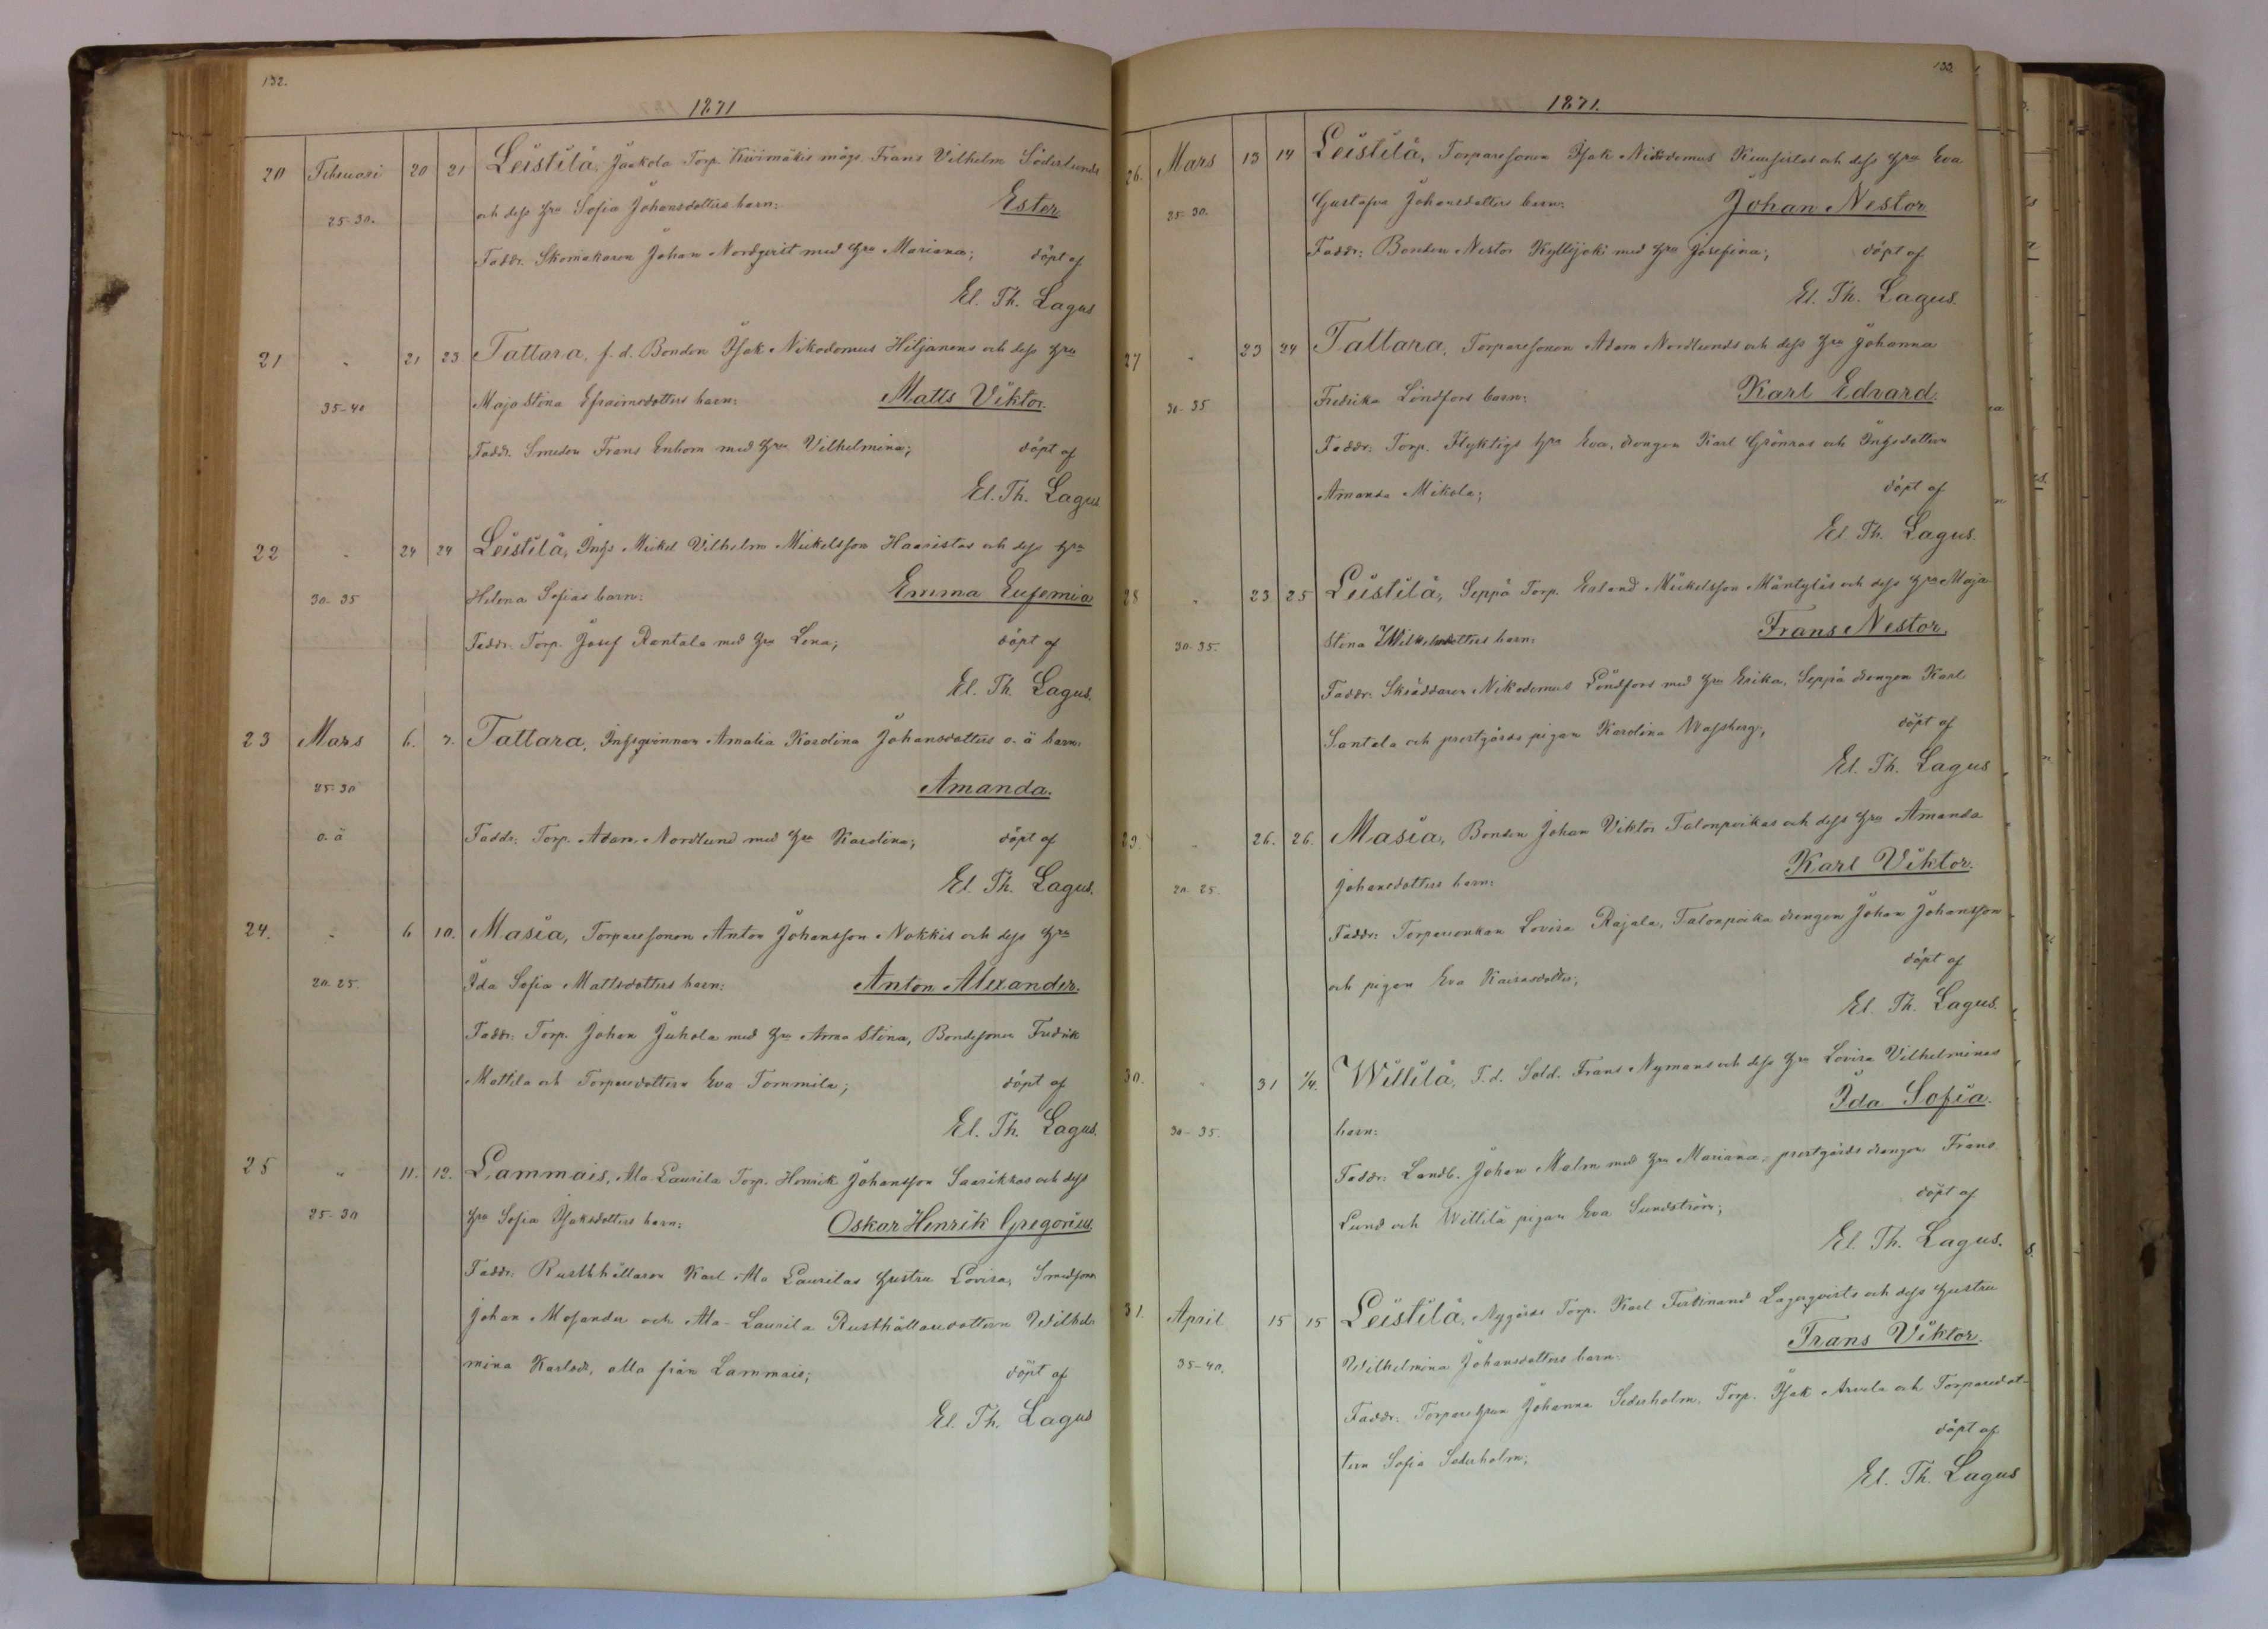 132.
1871
20 Februari 20 21 Leistilä, Jaakola Torp. Kivimäkis mågs Frans Vilhelm Söderlunds
25-30. och dess hru Sofia Johansdotters barn: Ester
Faddr. Skomakaren Johan Nordqvist med hru Mariana; döpt af
El. Th. Lagus
21 " 21 23 Tattara, f. d. Bonden Isak Nikodemus Hiljanens och dess hru
35-40 Maja Stina Efraimsdotters barn: Matts Viktor.
Faddr. Smeden Frans Enbom med hru Vilhelmina; döpt af
El. Th. Lagus
22 " 24 24 Leistilä, Inhs Mickel Vilhelm Mickelsson Haaristos och dess hru
30-35 Helena Sofias barn: Emma Eufemia
Faddr. Torp. Josef Rantala med hru Lena; döpt af
El. Th. Lagus.
23 Mars 6. 7. Tattara, Inhsqvinnan Amalia Karolina Johansdotters o. ä barn:
25-30 Amanda.
o. ä Faddr: Torp. Adam Nordlund med hru Karolina; döpt af
El. Th. Lagus.
24. " 6 10. Masia, Torparesonen Anton Johansson Nokkis och dess hru
20-25. Ida Sofia Mattsdotters barn: Anton Alexander.
Faddr: Torp. Johan Juhola med hru Anna Stina, Bondesonen Fredrik
Mattila och Torparedottern Eva Tommila; döpt af
El. Th. Lagus.
25 " 11. 12. Lammais, Ala-Laurila Torp. Henrik Johansson Saarikkos och dess
25-30 hru Sofia Isaksdotters barn: Oskar Henrik Gregorius.
Faddr: Rusthållaren Karl Ala Laurilas hustru Lovisa, Smedsonen
Johan Mosander och Ala-Laurila Rusthållaredottern Wilhel-
mina Karlsdr, alla från Lammais; döpt af
El. Th. Lagus
133
1871.
26. Mars 13 14 Leistilä, Torparesonen Isak Nikodemus Kuusistos och dess hru Eva
25-30. Gustafva Johansdotters barn: Johan Nestor
Faddr: Bonden Nestor Kyllijoki med hru Josefina; döpt af
El. Th. Lagus.
27 " 23 24 Tattara, Torparesonen Adam Nordlunds och dess hru Johanna
30-35 Fredrika Lindfors barn: Karl Edvard.
Faddr: Torp. Flyktigs hru Eva, drengen Karl Grönroos och Inhsdottern
Amanda Mikola; döpt af
El. Th. Lagus.
28 " 23 25 Leistilä, Seppä Torp. Erland Mickelsson Mäntyläs och dess hru Maja
30-35. Stina Wilhelmsdotters barn: Frans Nestor.
Faddr: Skräddaren Nikodemus Lindfors med hru Erika, Seppä drengen Karl
Santala och prestgårds pigan Karolina Wassberg; döpt af
El. Th. Lagus
29. " 26. 26. Masia, Bonden Johan Viktor Talonpoikas och dess hru Amanda
20-25. Johansdotters barn: Karl Viktor.
Faddr: Torpareenkan Lovisa Rajala, Talonpoika drengen Johan Johansson
och pigan Eva Kaisasdotter; döpt af
El. Th. Lagus.
30. " 31 1/4. Wittilä, F. d. Sold. Frans Nymans och dess hru Lovisa Vilhelminas
30-35. barn: Ida Sofia.
Faddr: Landb. Johan Malm med hru Mariana, prestgårds drengen Frans
Lund och Wittilä pigan Eva Sundström; döpt af
El. Th. Lagus.
31. April 15 15 Leistilä, Nygårds Torp. Karl Ferdinand Lagerqvists och dess hustru
35-40. Wilhelmina Johansdotters barn: Frans Viktor.
Faddr: Torparehrun Johanna Sederholm, Torp. Isak Arvela och Torparedot-
tern Sofia Sederholm; döpt af
El. Th. Lagus